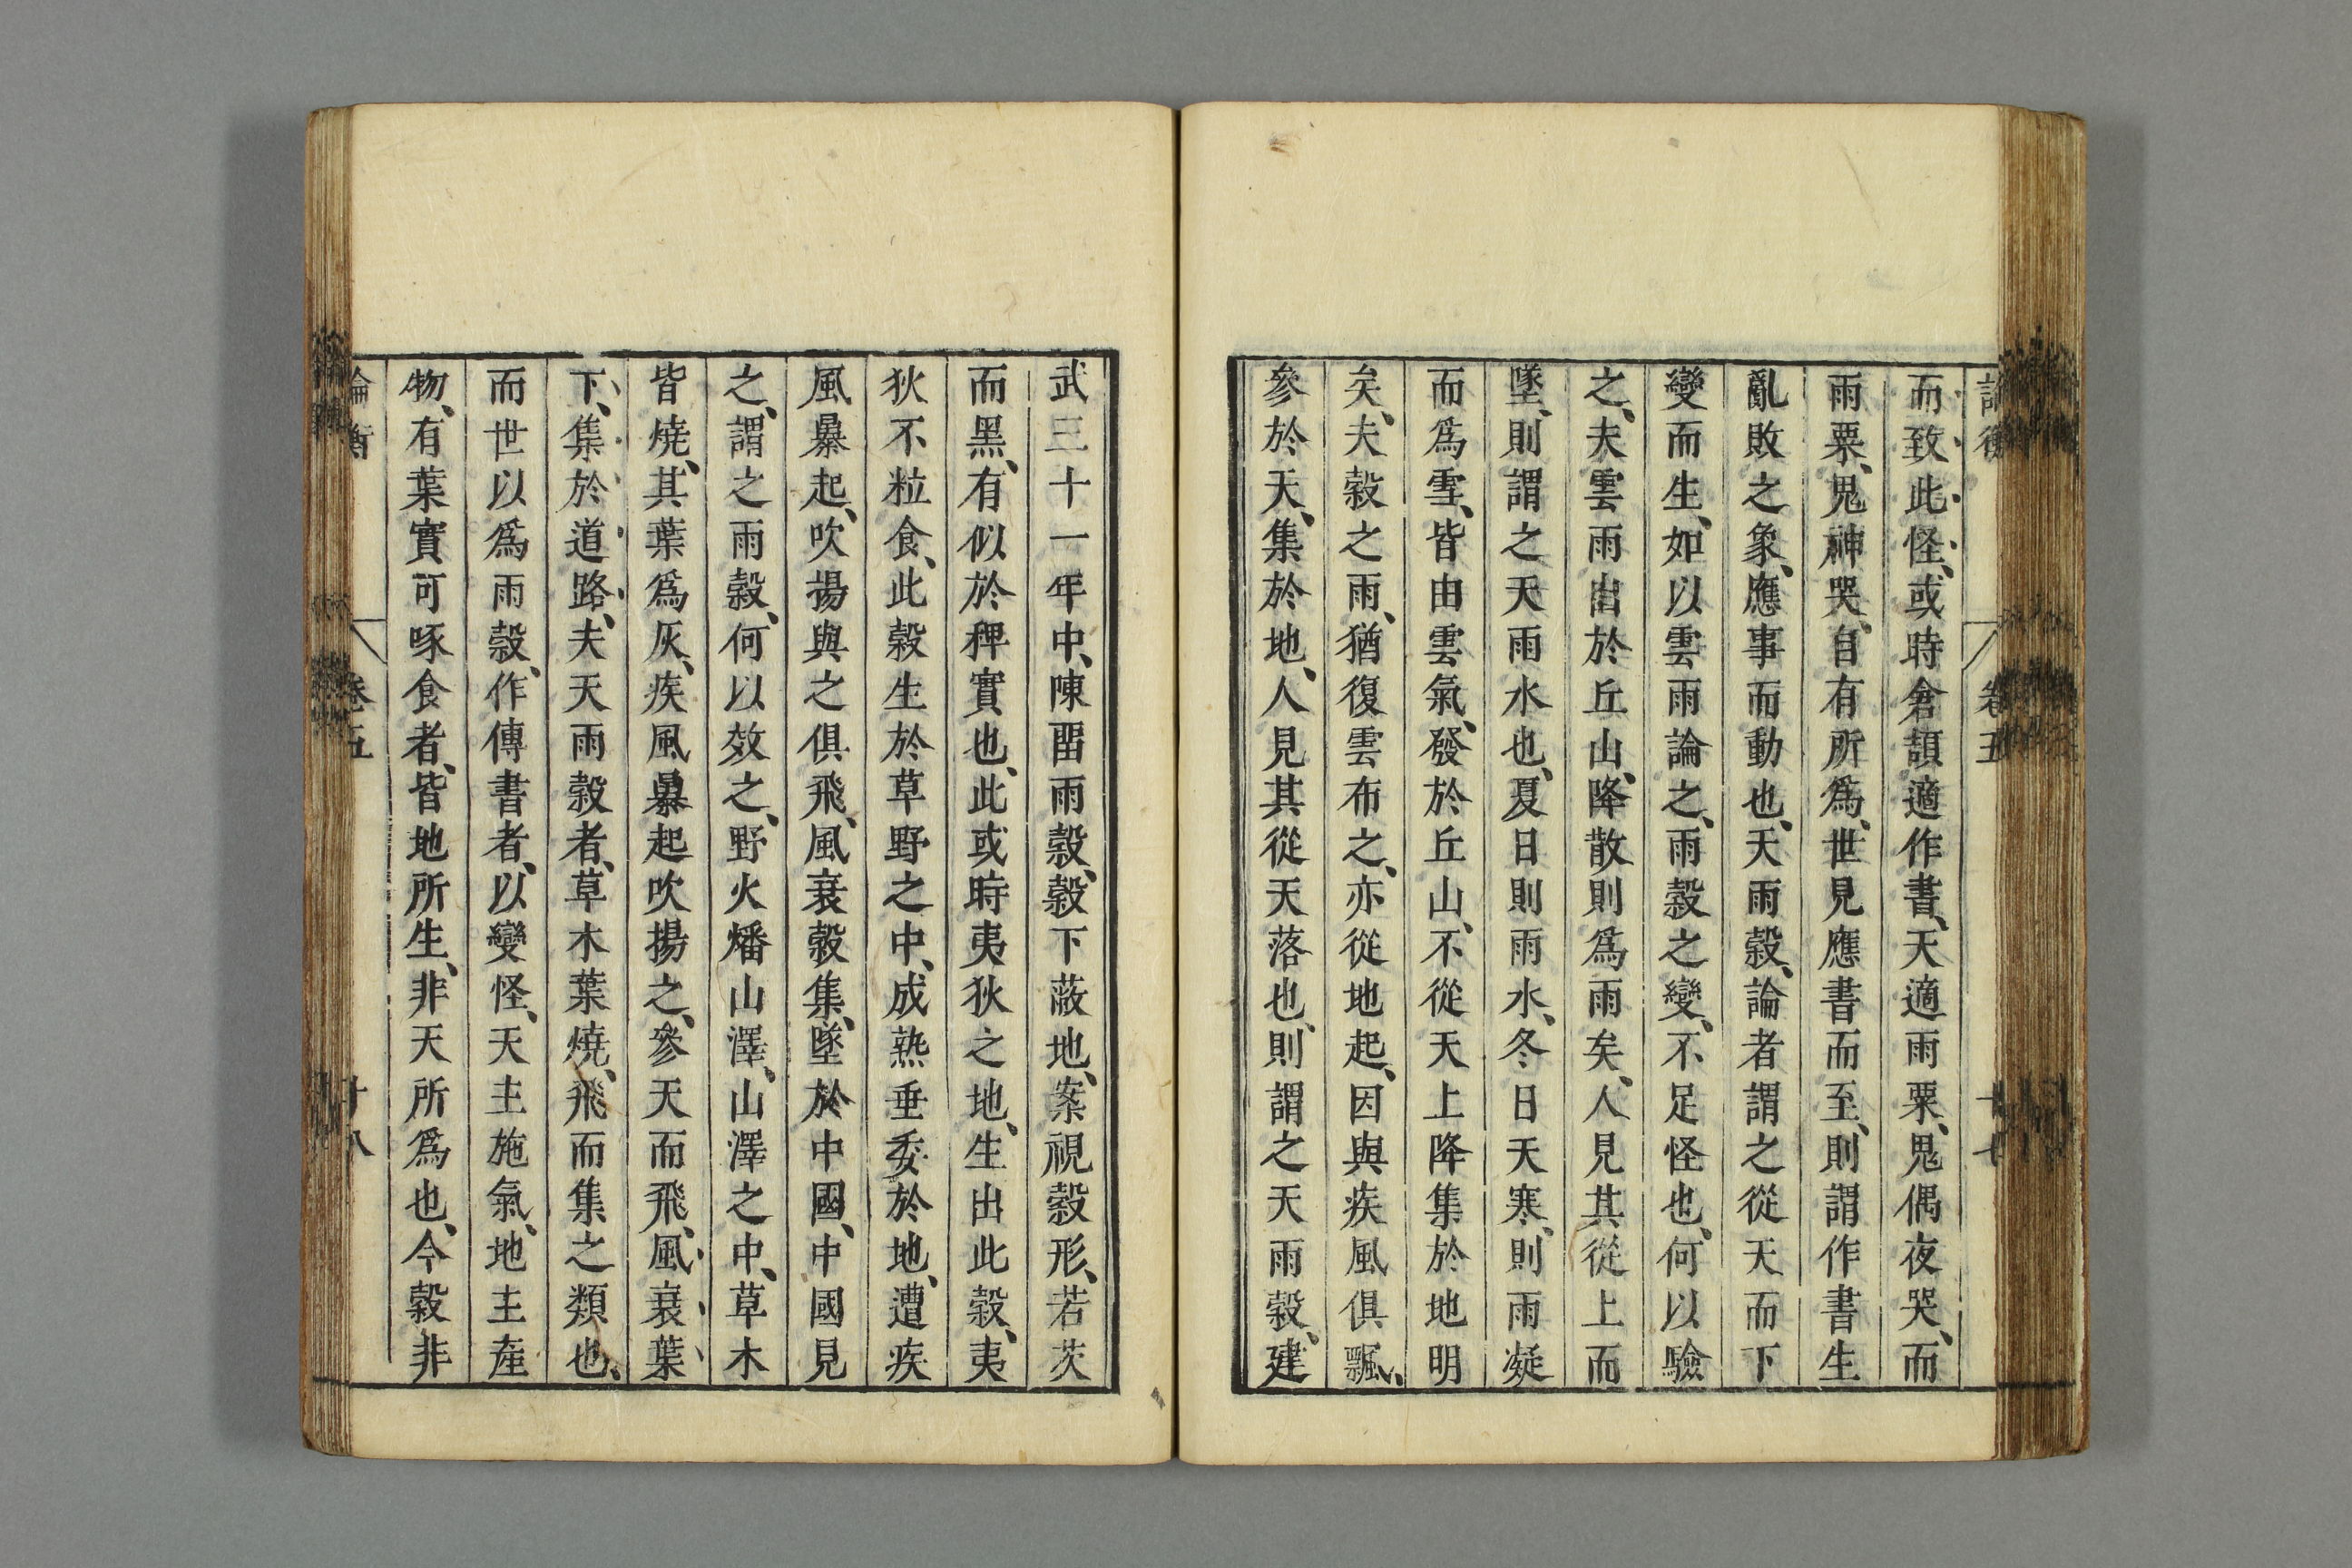 論衡 卷五 十七
而致此怪、或時倉頡適作書、天適雨粟、鬼偶夜哭、而
雨粟、鬼神哭、自有所爲、世見應書而至、則謂作書生
亂敗之象、應事而動也、天雨穀、論者謂之從天而下
變而生、如以雲雨論之、雨穀之變、不足怪也、何以驗
之、夫雲雨出於丘山、降散則爲雨矣、人見其從上而
墜、則謂之天雨水也、夏日則雨水、冬日天寒、則雨凝
而爲雪、皆由雲氣、發於丘山、不從天上降集於地明
矣、夫穀之雨、猶復雲布之、亦從地起、因與疾風俱飄、
參於天、集於地、人見其從天落也、則謂之天雨穀、建
武三十一年中、陳畱雨穀、穀下蔽地、案視穀形、若茨
而黑、有似於稗實也、此或時夷狄之地、生出此穀、夷
狄不粒食、此穀生於草野之中、成熟垂委於地、遭疾
風暴起、吹揚與之俱飛、風衰穀集、墜於中國、中國見
之、謂之雨穀、何以效之、野火燔山澤、山澤之中、草木
皆燒、其葉爲灰、疾風暴起吹揚之、參天而飛、風衰葉
下、集於道路、夫天雨穀者、草木葉燒、飛而集之類也、
而世以爲雨穀、作傳書者、以變怪、天主施氣、地主產
物、有葉實可啄食者、皆地所生、非天所爲也、今穀非
論衡 卷五 十八